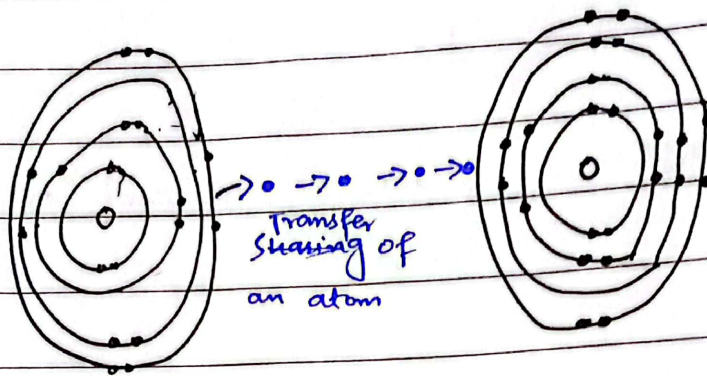 Transfer
Sharing of
an atom